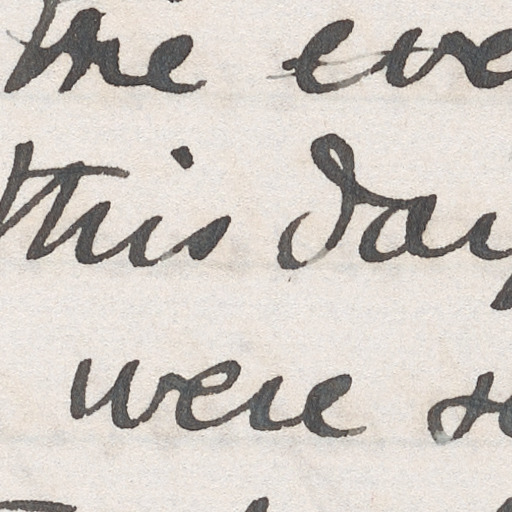 the eve
this day
were s